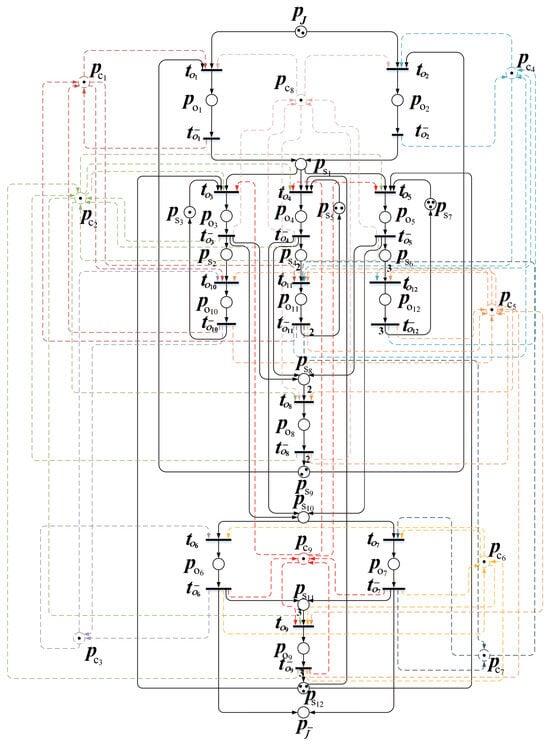 p_J
t_o1 t_o2
p_c1 p_c8 p_c4
p_o1 p_o2
t⁻_o1 t⁻_o2
p_s1
t_o3 t_o4 t_o5
p_c2 p_s3 p_o3 p_o4 p_s5 p_o5 p_s7
t⁻_o3 t⁻_o4 t⁻_o5
p_s2 p_s4 p_s6
2 3
t_o10 t_o11 t_o12
p_o10 p_o11 p_o12 p_c5
t⁻_o10 t⁻_o11 2 3 t⁻_o12
p_s8
2
t_o8
p_o8
t⁻_o8 2
p_s9
p_s10
t_o6 t_o7
p_c9 p_c6
p_o6 p_o7
t⁻_o6 p_s11 t⁻_o7
3
t_o9
p_c3 p_o9 p_c7
t⁻_o9
p_s12
p_J⁻